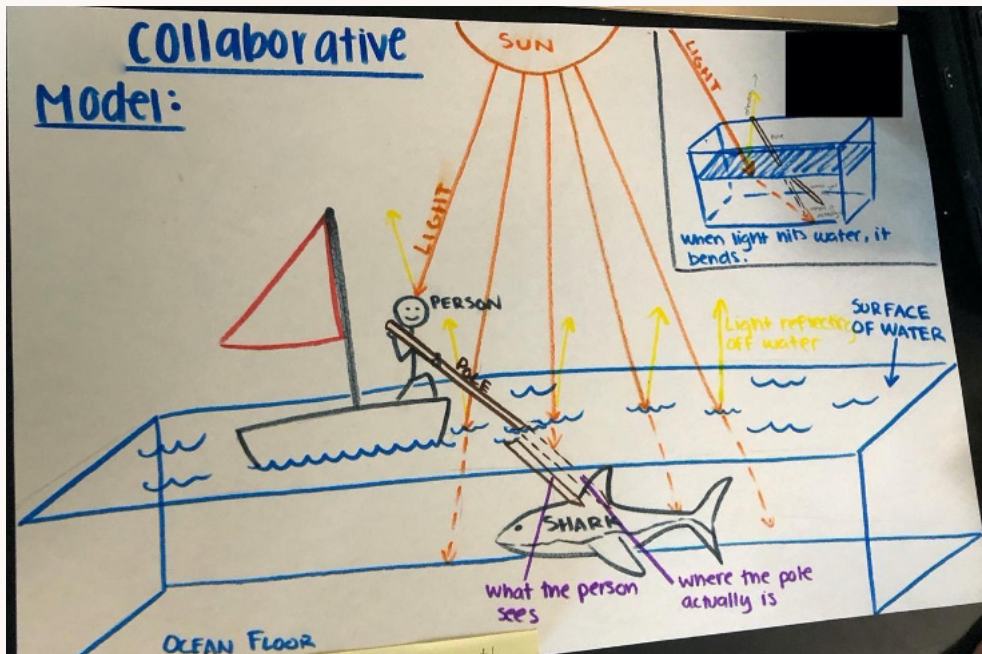 Collaborative
Model:
SUN
LIGHT
LIGHT
when light hits water, it
bends.
PERSON
POLE
Light reflecting
off water
SURFACE
OF WATER
SHARK
what the person
sees
where the pole
actually is
OCEAN FLOOR